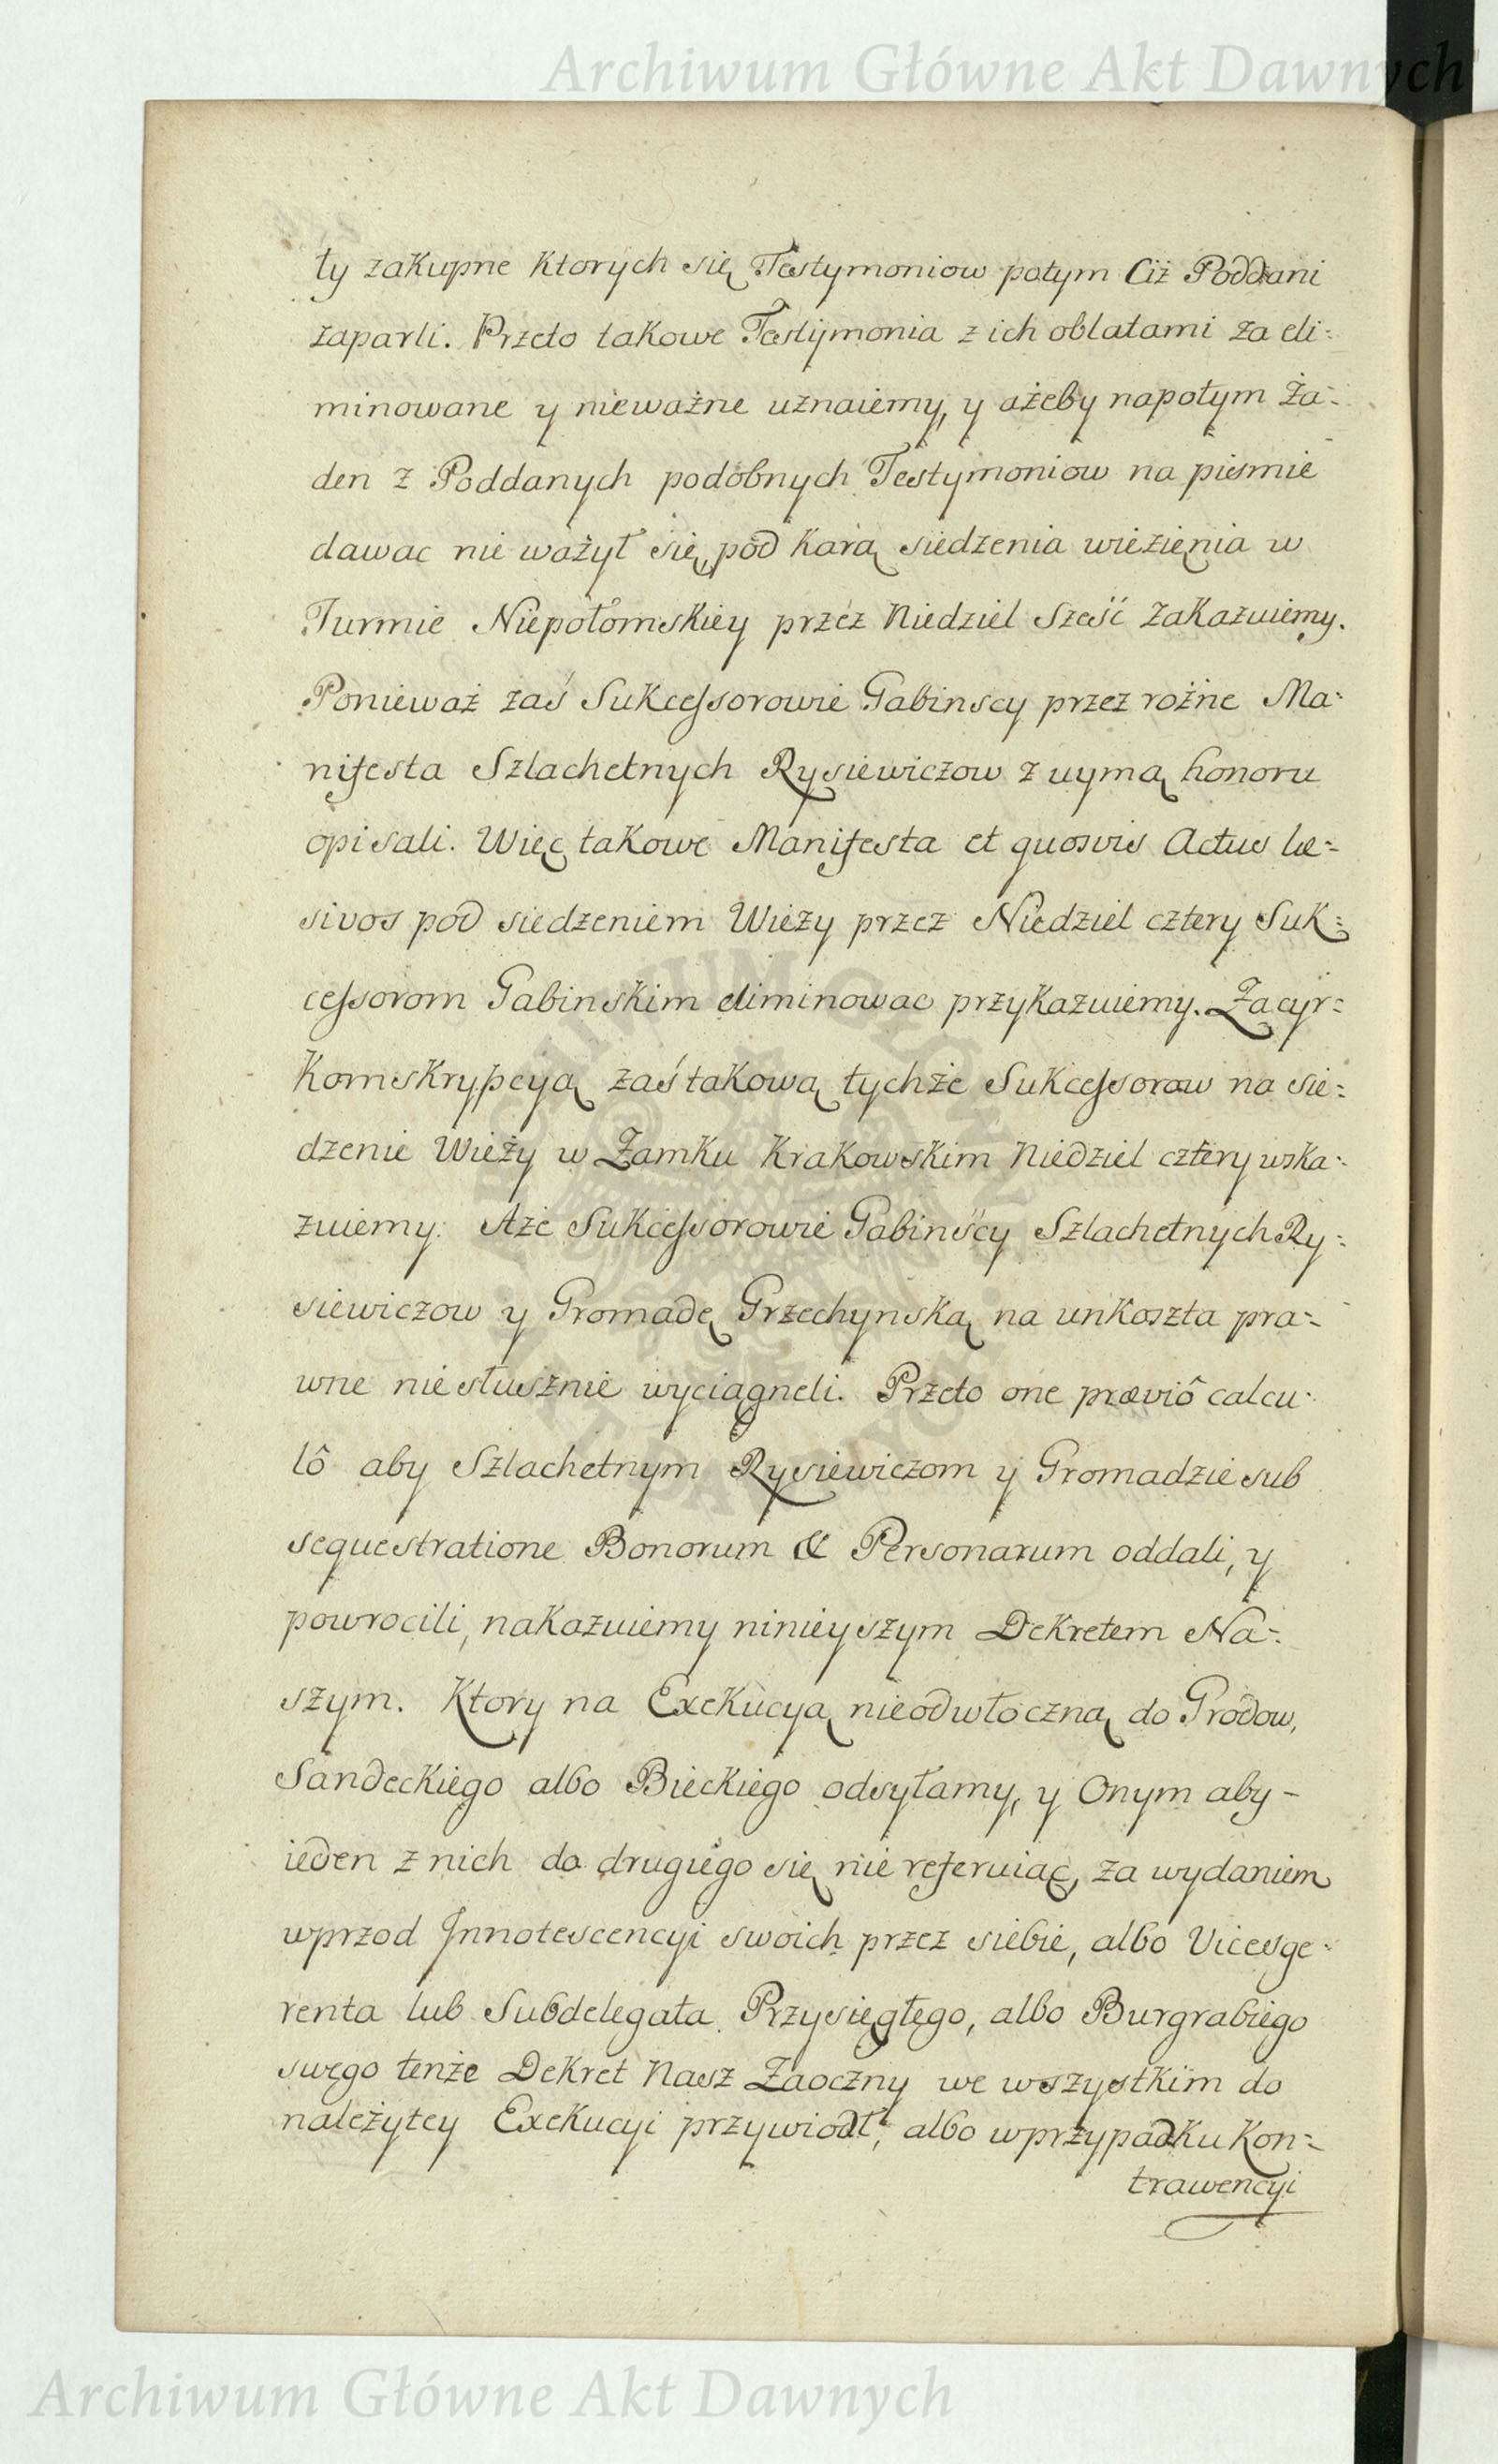 Archiwum Główne Akt Dawnych
ty zakupne ktorych się Testymoniow potym Ciż Poddani
zaparli. Przeto takowe Testijmonia z ich oblatami za eli=
minowane y nieważne uznaiemy, y ażeby napotym Ża=
den z Poddanych podobnych Testymoniow na pismie
dawac nie ważył się, pod karą siedzenia wiezięnia w
Turmie Niepołomskiey przez Niedziel Sześć zakazuiemy.
Ponieważ zaś Sukcessorowie Gabinscy przez rożne Ma=
nifesta Szlachetnych Rysiewiczow z uymą honoru
opisali. Więc takowe Manifesta et quosvis Actus læ=
sivos pod siedzeniem Wieży przez Niedziel cztery Suk=
cessorom Gabinskim eliminowac przykazuiemy. Za cyr=
komskrypcyą zaś takową tychże Sukcessorow na sie=
dzenie Wieży w Zamku Krakowskim Niedziel cztery wska=
zuiemy. Aże Sukcessorowie Gabinscy Szlachetnych Ry=
siewiczow y Gromadę Grzechynską na unkoszta pra=
wne niesłusznie wyciągneli. Przeto one præviô calcu=
lô aby Szlachetnym Rysiewiczom y Gromadzie sub
sequestratione Bonorum & Personarum oddali, y
powrocili, nakazuiemy ninieyszym Dekretem Na=
szym. Ktory na Exekucyą nieodwłoczną do Grodow,
Sandeckiego albo Bieckiego odsyłamy, y Onym aby -
ieden z nich do drugiego się nie referuiąc, za wydaniem
wprzod Innotescencyi swoich przez siebie, albo Vicesge=
renta lub Subdelegata Przysięgłego, albo Burgrabiego
swego tenże Dekret Nasz Zaoczny we wszystkim do
należytey Exekucyi przywiodł, albo wprzypadku Kon=
trawencyi
Archiwum Główne Akt Dawnych